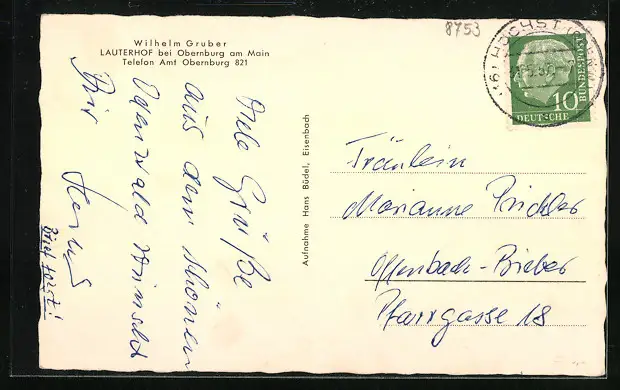 Wilhelm Gruber
LAUTERHOF bei Obernburg am Main
Telefon Amt Obernburg 821
Viele Grüße
aus dem schönen
Odenwald wünscht
Dir
Brief folgt!
Aufnahme Hans Büdel, Eisenbach
8753
(16) HÖCHST (ODENW)
10
DEUTSCHE
BUNDESPOST
Fräulein
Marianne Pichler
Offenbach-Bieber
Pfarrgasse 18